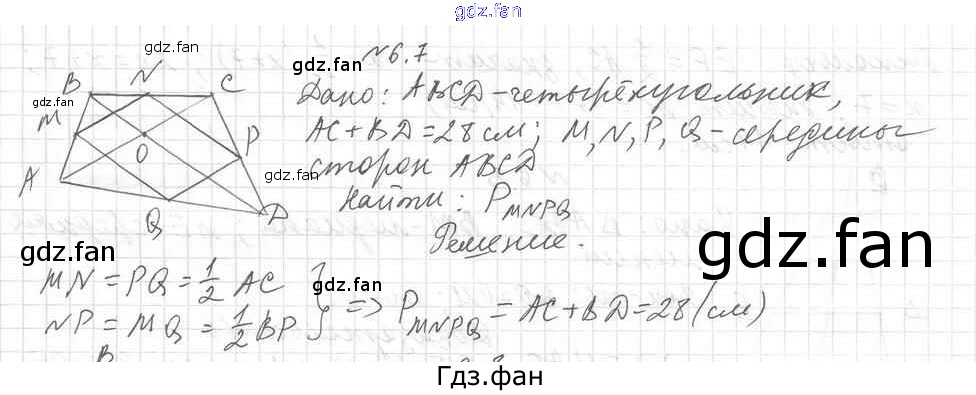 gdz.fan
№6.7
gdz.fan
gdz.fan
gdz.fan
B N C
M
O
P
A
Q
D
gdz.fan
Дано: ABCD-четырёхугольник,
AC+BD=28см; M,N,P,Q-середины
сторон ABCD
Найти: P MNPQ
Решение.
gdz.fan
gdz.fan
gdz.fan
MN = PQ = 1/2 AC
NP = MQ = 1/2 BP } => P MNPQ = AC+BD=28(см)
B
Гдз.фан